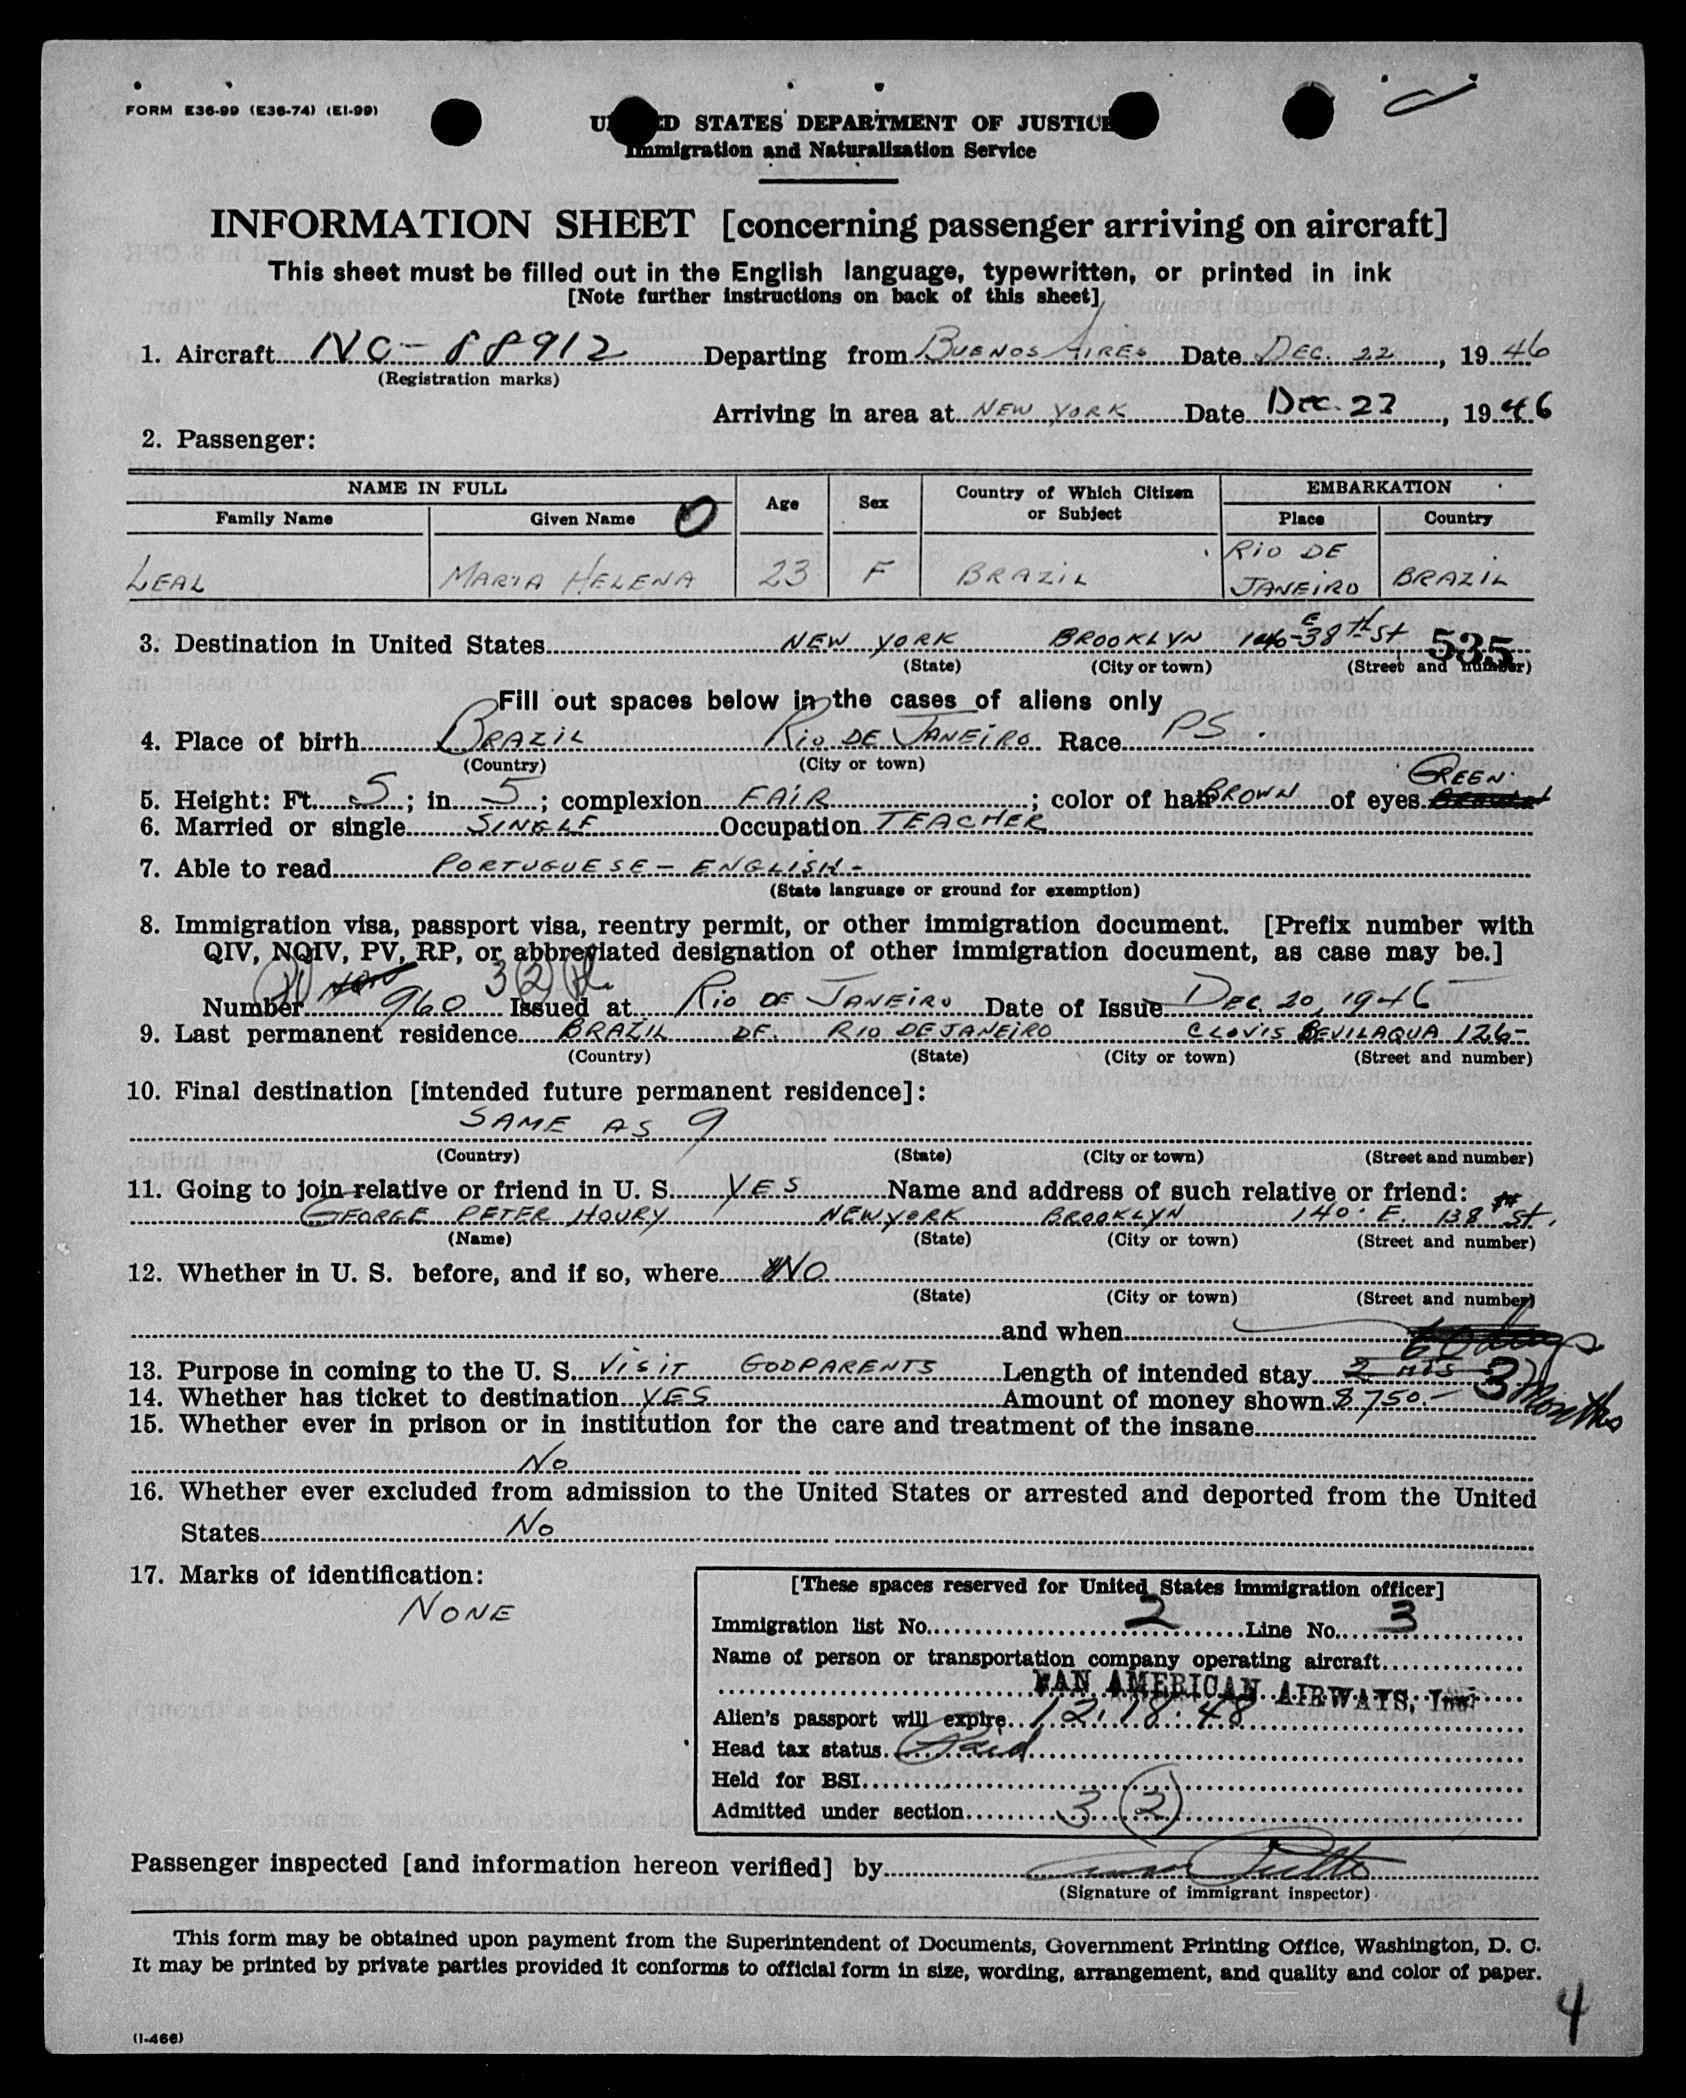 FORM E36-99 (E36-74) (EI-99)
UNITED STATES DEPARTMENT OF JUSTICE
Immigration and Naturalization Service
INFORMATION SHEET [concerning passenger arriving on aircraft]
This sheet must be filled out in the English language, typewritten, or printed in ink
[Note further instructions on back of this sheet]
1. Aircraft NC-88912 Departing from BUENOS AIRES Date DEC. 22, 1946
(Registration marks)
Arriving in area at NEW YORK Date Dec. 23, 1946
2. Passenger:
NAME IN FULL Age Sex Country of Which Citizen or Subject EMBARKATION
Family Name Given Name Place Country
LEAL MARIA HELENA 23 F BRAZIL RIO DE JANEIRO BRAZIL
3. Destination in United States NEW YORK BROOKLYN 146-E 38th St 535
(State) (City or town) (Street and number)
Fill out spaces below in the cases of aliens only
4. Place of birth BRAZIL RIO DE JANEIRO Race PS
(Country) (City or town)
5. Height: Ft. 5; in. 5; complexion FAIR; color of hair BROWN of eyes GREEN
6. Married or single SINGLE Occupation TEACHER
7. Able to read PORTUGUESE - ENGLISH -
(State language or ground for exemption)
8. Immigration visa, passport visa, reentry permit, or other immigration document. [Prefix number with
QIV, NQIV, PV, RP, or abbreviated designation of other immigration document, as case may be.]
3(2)
Number 960 Issued at RIO DE JANEIRO Date of Issue DEC. 20, 1946
9. Last permanent residence BRAZIL DF. RIO DE JANEIRO CLOVIS BEVILAQUA 126-
(Country) (State) (City or town) (Street and number)
10. Final destination [intended future permanent residence]:
SAME AS 9
(Country) (State) (City or town) (Street and number)
11. Going to join relative or friend in U. S. YES Name and address of such relative or friend:
GEORGE PETER HOURY NEW YORK BROOKLYN 140 E. 138th St.
(Name) (State) (City or town) (Street and number)
12. Whether in U. S. before, and if so, where NO
(State) (City or town) (Street and number)
and when
13. Purpose in coming to the U. S. VISIT GODPARENTS Length of intended stay 3 Months
14. Whether has ticket to destination YES Amount of money shown $750.-
15. Whether ever in prison or in institution for the care and treatment of the insane
No
16. Whether ever excluded from admission to the United States or arrested and deported from the United
States No
17. Marks of identification:
NONE
[These spaces reserved for United States immigration officer]
Immigration list No. 2 Line No. 3
Name of person or transportation company operating aircraft
PAN AMERICAN AIRWAYS, Inc.
Alien's passport will expire 12.18.48
Head tax status Paid
Held for BSI
Admitted under section 3 (2)
Passenger inspected [and information hereon verified] by
(Signature of immigrant inspector)
This form may be obtained upon payment from the Superintendent of Documents, Government Printing Office, Washington, D. C.
It may be printed by private parties provided it conforms to official form in size, wording, arrangement, and quality and color of paper.
4
(I-466)